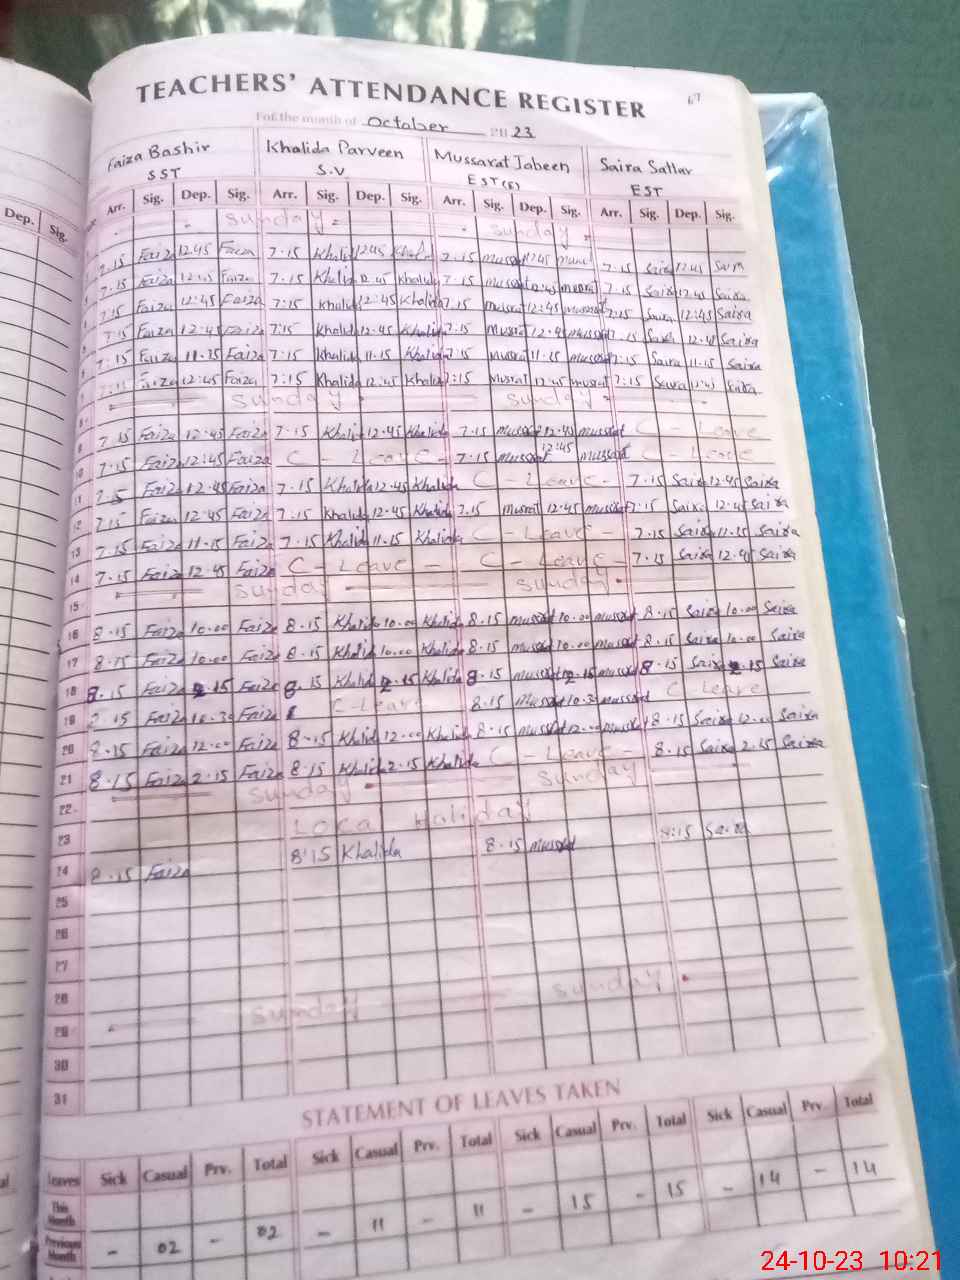 TEACHERS' ATTENDANCE REGISTER 67
For the month of October 2023
Faiza Bashir Khalida Parveen Mussarat Jabeen Saira Sattar
SST S.V EST(S) EST
Dep. Sig. Arr. Sig. Dep. Sig. Arr. Sig. Dep. Sig. Arr. Sig. Dep. Sig. Arr. Sig. Dep. Sig.
Sunday Sunday
7.15 Faiza 12.45 Faiza 7.15 Khalid 12.45 7.15 12.45 7.15 Saira 12.45
7.15 Faiza Faiza 7.15 Khalid 12.45 Khalida 7.15 7.15 Saira 12.45 Saira
7.15 Faiza 12:45 Faiza 7:15 Khalid 12:45 Khalida 7.15 12:45 7.15 Saira 12:45 Saira
7.15 Faiza 12.45 Faiza 7:15 Khalid 12.45 Khalida 7.15 12.45 7.15 Saira Saira
7.15 Faiza 11.15 Faiza 7:15 Khalid 11.15 Khalida 7:15 11.15 7:15 Saira 11.15 Saira
Faiza 12:45 Faiza 7:15 Khalida 12:45 Khalida 7:15 Musrat 12.45 musrat 7:15 Saira Saira
Sunday Sunday
9 7.15 Faiza 12.45 Faiza 7.15 Khalid 12.45 Khalida 7.15 mussrat 12.45 mussrat C - Leave
10 7.15 Faiza 12:45 Faiza C - Leave - 7.15 mussrat 12:45 mussrat C - Leave
11 Faiza 12.45 Faiza 7.15 Khalida 12.45 Khalida C - Leave - 7.15 Saira 12.45 Saira
12 7.15 Faiza 12.45 Faiza 7.15 Khalida 12.45 Khalida 7.15 Musrat 12.45 mussrat 7.15 Saira 12.45 Saira
13 7.15 Faiza 11.15 Faiza 7.15 Khalid 11.15 Khalida C - Leave - 7.15 Saira 11.15 Saira
14 7.15 Faiza 12.45 Faiza C - Leave - C - Leave - 7.15 Saira 12.45 Saira
15 Sunday Sunday
16 8.15 Faiza 10.00 Faiza 8.15 Khalid 10.00 Khalida 8.15 mussrat 10.00 mussrat 8.15 Saira 10.00 Saira
17 8.15 Faiza 10.00 Faiza 8.15 Khalid 10.00 Khalida 8.15 mussrat 10.00 mussrat 8.15 Saira 10.00 Saira
18 8.15 Faiza 2.15 Faiza 8.15 Khalid 2.15 Khalida 8.15 mussrat mussrat 8.15 Saira 2.15 Saira
19 Faiza 10.30 Faiza C-Leave 8.15 mussrat 10.30 mussrat C-Leave
20 8.15 Faiza 12.00 Faiza 8.15 Khalid 12.00 Khalida 8.15 mussrat 12.00 mussrat 8.15 Saira 12.00 Saira
21 8.15 Faiza 2.15 Faiza 8.15 Khalid 2.15 Khalida C - Leave - 8.15 Saira 2.15 Saira
22 Sunday Sunday
23 Local Holiday
24 8.15 Faiza 8:15 Khalida 8.15 mussrat 8:15 Saira
25
26
27
28
29 Sunday Sunday
30
31
STATEMENT OF LEAVES TAKEN
Leaves Sick Casual Prv. Total Sick Casual Prv. Total Sick Casual Prv. Total Sick Casual Prv. Total
This Month
Previous Month - 02 - 02 - 11 - 11 - 15 - 15 - 14 - 14
24-10-23 10:21